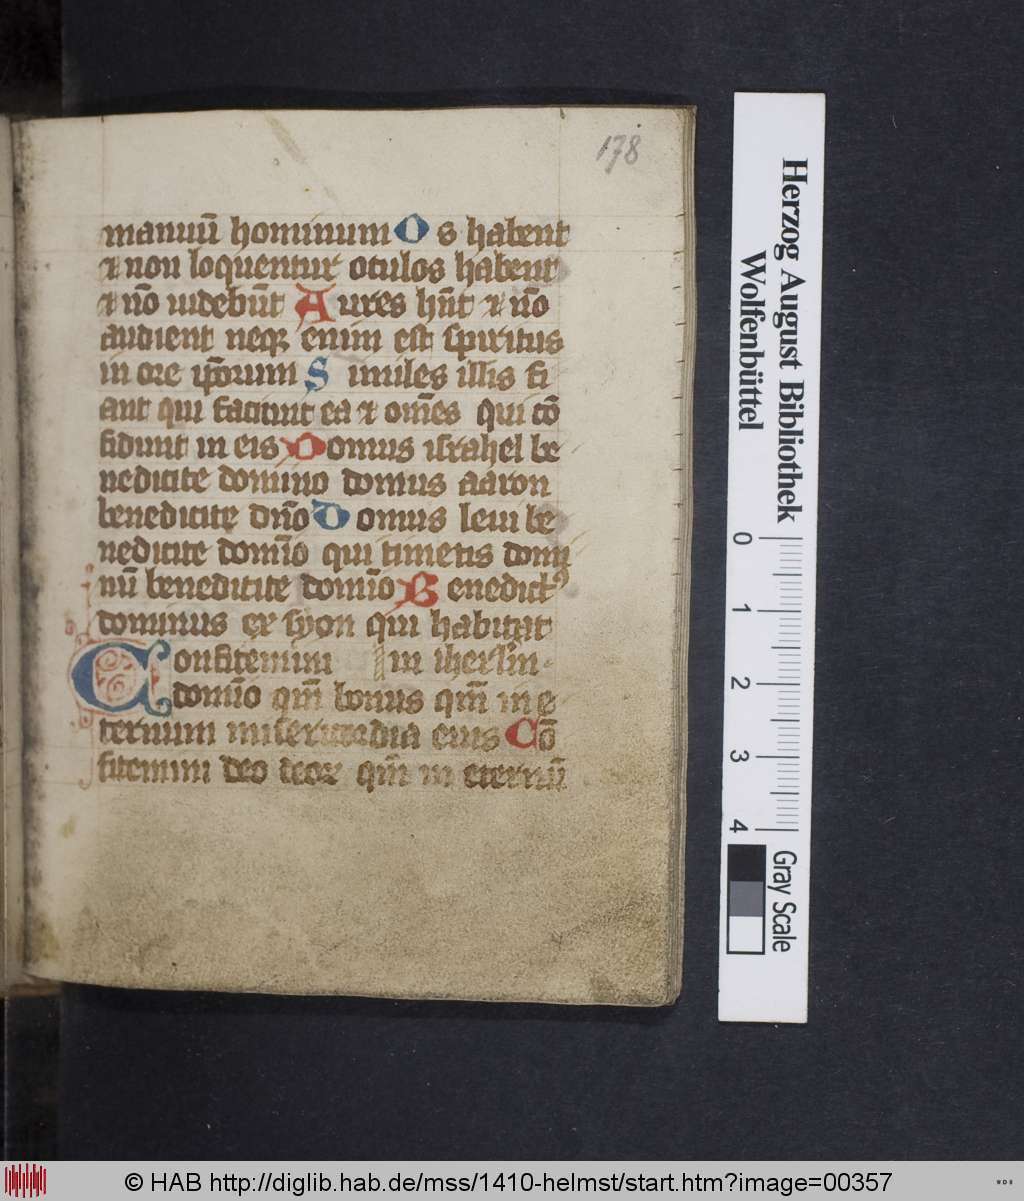 178
manuū hominum Os habent
⁊ non loquentur oculos habent
⁊ nō uidebūt Aures hn̄t ⁊ nō
audient neqꝫ enim est spiritus
in ore ip̄orum Similes illis fi
ant qui faciunt ea ⁊ om̄es qui cō
fidunt in eis Domus israhel be
nedicite domino domus aaron
benedicite dn̄o Domus leui be
nedicite domīo qui timetis domi
nū benedicite domīo Benedictꝰ
dominus ex syon qui habitat
Confitemini in iherlm̄
domīo qm̄ bonus qm̄ in e
ternum misericordia eius Cō
fitemini deo deoꝝ qm̄ in eternū
Herzog August Bibliothek
Wolfenbüttel
0 1 2 3 4
Gray Scale
© HAB http://diglib.hab.de/mss/1410-helmst/start.htm?image=00357